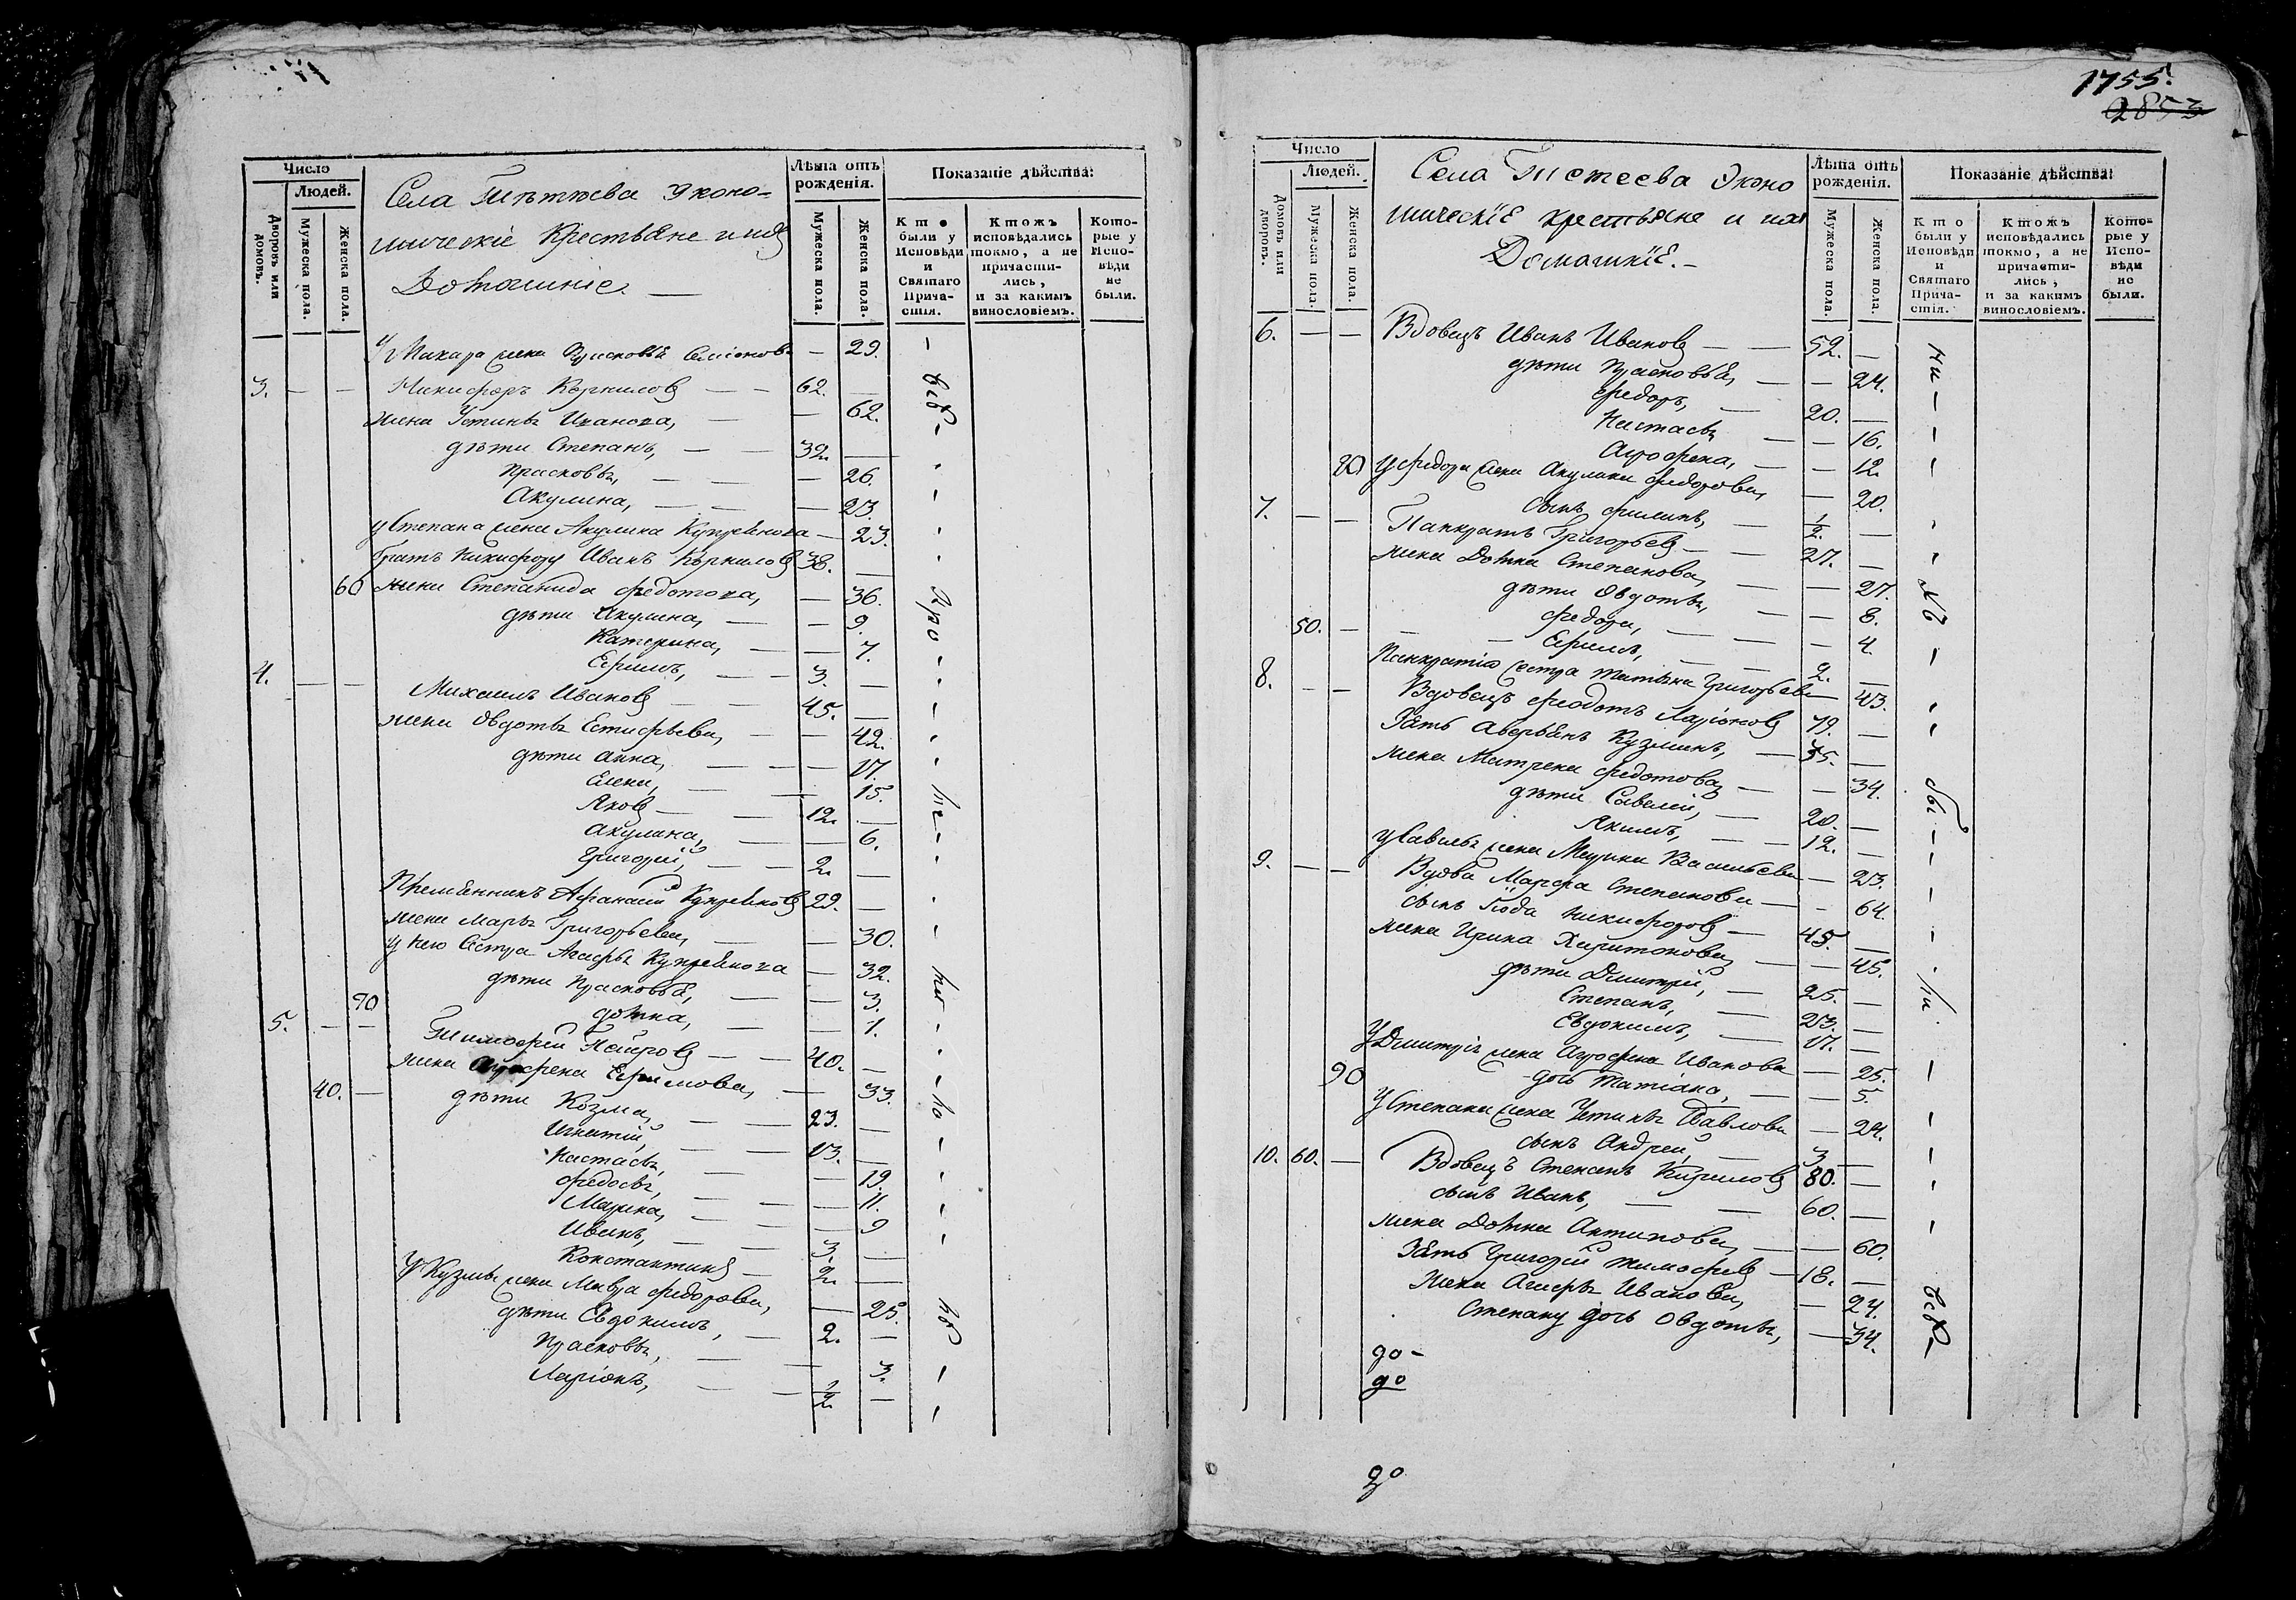 Число
Людей.
Дворовъ или домовъ.
Мужеска пола.
Женска пола.
Села эконо-
мическіе крестьяне и ихъ
Домашніе. —
Лѣта отъ рожденія.
Мужеска пола.
Женска пола.
Показаніе дѣйства:
Кто были у Исповѣди и Святаго Прича-стія.
Ктожъ исповѣдались токмо, а не причасти-лись, и за какимъ винословіемъ.
Кото-рые у Испо-вѣди не были.
У Макара жена Прасковья Семіонова — 29.
3. — — Никифоръ Корнилов — — 62. —
жена Устинья Иванова, — — 62.
дѣти Степанъ, — — 32. —
Прасковья, — — — 26.
Акулина, — — — 23.
у Степана жена Акулина Купреянова — 23.
братъ Никифору Иванъ Корнилов 38. —
60 жена Степанида Федотова, — 36.
дѣти Акулина, — — 9.
Катерина, — — 7.
Ефимъ, — — 3. —
4. — — Михаилъ Иванов — — 45. —
жена Овдотья Естифѣева, — — 42.
дѣти Анна, — — — 17.
Елена, — — 15.
Яков — — 12. —
Акулина, — — 6.
Григорій, — — 2. —
Племянникъ Афанасій Купреянов 29. —
жена Марья Григорьева, — — 30.
у него сестра Агафья Купреянова — 32.
дѣти Прасковья, — — 3.
70 Домна, — — 1.
5. — — Тимофей Петров — — 40. —
жена Агрофена Ефимова, — 33.
40. — дѣти Козма, — — 23. —
Игнатій, — — 13. —
Настасья, — — 19.
Федосья, — — — 11.
Марина, — — — 9
Иванъ, — — 3. —
Константин — 2. —
У Кузмы жена Мавра Федорова, — 25.
дѣти Евдокимъ, — 2. —
Прасковья, — — 3.
Ларіонъ, — — 1/2. —
1755.
2853
Число
Людей.
Домовъ или дворовъ.
Мужеска пола.
Женска пола.
Села Тистеева Эконо
мическіе крестьяне и ихъ
Домашніе. —
Лѣта отъ рожденія.
Мужеска пола.
Женска пола.
Показаніе дѣйства:
Кто были у Исповѣди и Святаго Прича-стія.
Ктожъ исповѣдались токмо, а не причасти-лись, и за какимъ винословіемъ.
Кото-рые у Испо-вѣди не были.
6. — — Вдовецъ Иванъ Иванов — — 52. —
дѣти Прасковья, — — 24.
Федоръ, — 20. —
Настасья — — 16.
Агрофена, — — 12.
80. у Федора жена Акулина Федорова, — 20.
сынъ Филипъ, — 1/2. —
7. — — Панкратъ Григорьев — — 27. —
жена Домна Степанова, — — 27.
дѣти Овдотья, — — 8.
Федора, — — — 4.
50. — — — Ефимъ, — — 2. —
Панкратію сестра Татьяна Григорьева — 43.
8. — — Вдовецъ Федотъ Ларіонов 79. —
Зять Аверьянъ Кузминъ, — 35. —
жена Матрена Федотова — — 34.
дѣти Савелій, — 20. —
Якимъ, — — 12. —
у Савелья жена Васильева — 23.
9. — — Вдова Марфа Степанова — — 64.
сынъ Никифоров — 45. —
жена Ирина Харитонова, — — 45.
дѣти Дмитрій, — 25. —
Степанъ, — 23. —
Евдокимъ, — 17. —
У Дмитрія жена Агрофена Иванова — 25.
90 дочь Татіана, — — 5.
У Степана жена Устинья Павлова — 24.
сынъ Андрей, — 3. —
10. 60. — Вдовецъ Степанъ Кирилов 80. —
сынъ Иванъ, — — 60. —
жена Домна Антипова, — — 60.
Зять Григорій Тимофеев — 18. —
жена Агафья Иванова, — 24.
Степану дочь Овдотья, — 34.
до -
до
до